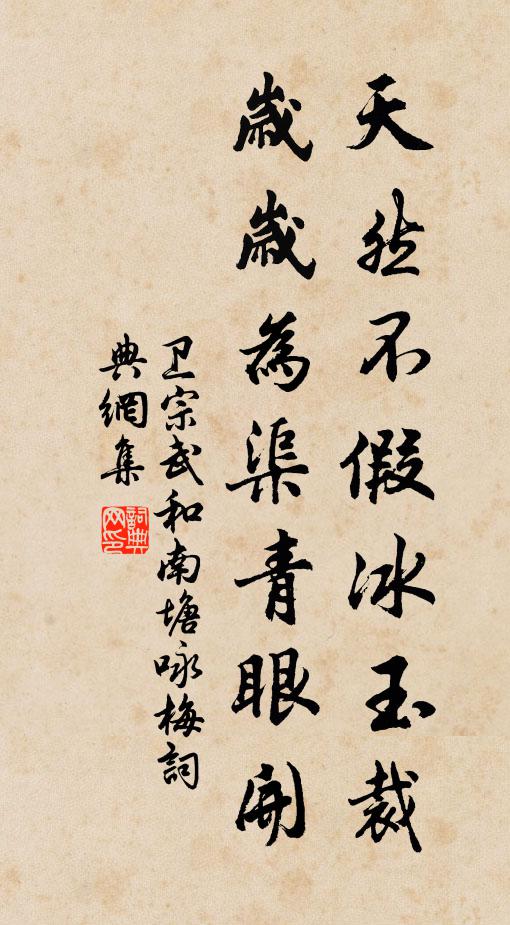 天然不假冰玉裁
歲歲為渠青眼開
卫宗武和南塘咏梅詞
典網集
詞典
网印